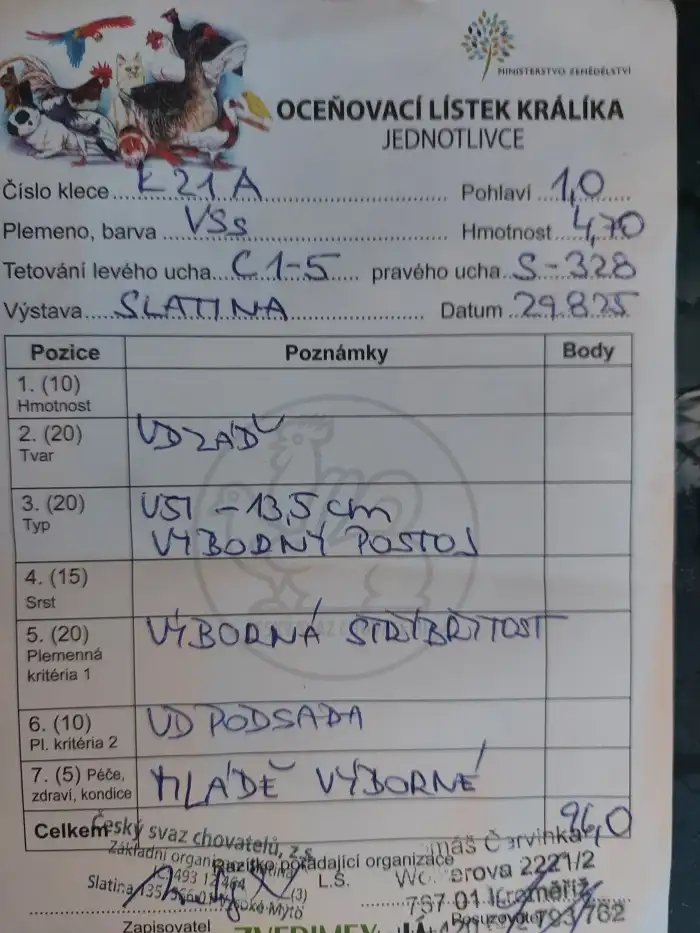 MINISTERSTVO ZEMĚDĚLSTVÍ
OCEŇOVACÍ LÍSTEK KRÁLÍKA
JEDNOTLIVCE
Číslo klece K21A Pohlaví 1,0
Plemeno, barva VSs Hmotnost 4,70
Tetování levého ucha C1-5 pravého ucha S-328
Výstava SLATINA Datum 29.8.25
Pozice Poznámky Body
1. (10)
Hmotnost
2. (20) VD ZÁĎ
Tvar
3. (20) UŠI - 13,5 cm
Typ VÝBODNÝ POSTOJ
4. (15)
Srst
5. (20) VÝBORNÁ STŘÍBŘITOST
Plemenná
kritéria 1
6. (10) VD PODSADA
Pl. kritéria 2
7. (5) Péče, MLÁDĚ VÝBORNÉ
zdraví, kondice
Celkem 96,0
Český svaz chovatelů, z.s.
Základní organizace Slatina
Razítko pořádající organizace
L.S.
(3)
Slatina 135, 566 01 Vysoké Mýto
Červinka
2221/2
767 01 Kroměříž
Zapisovatel Posuzovatel